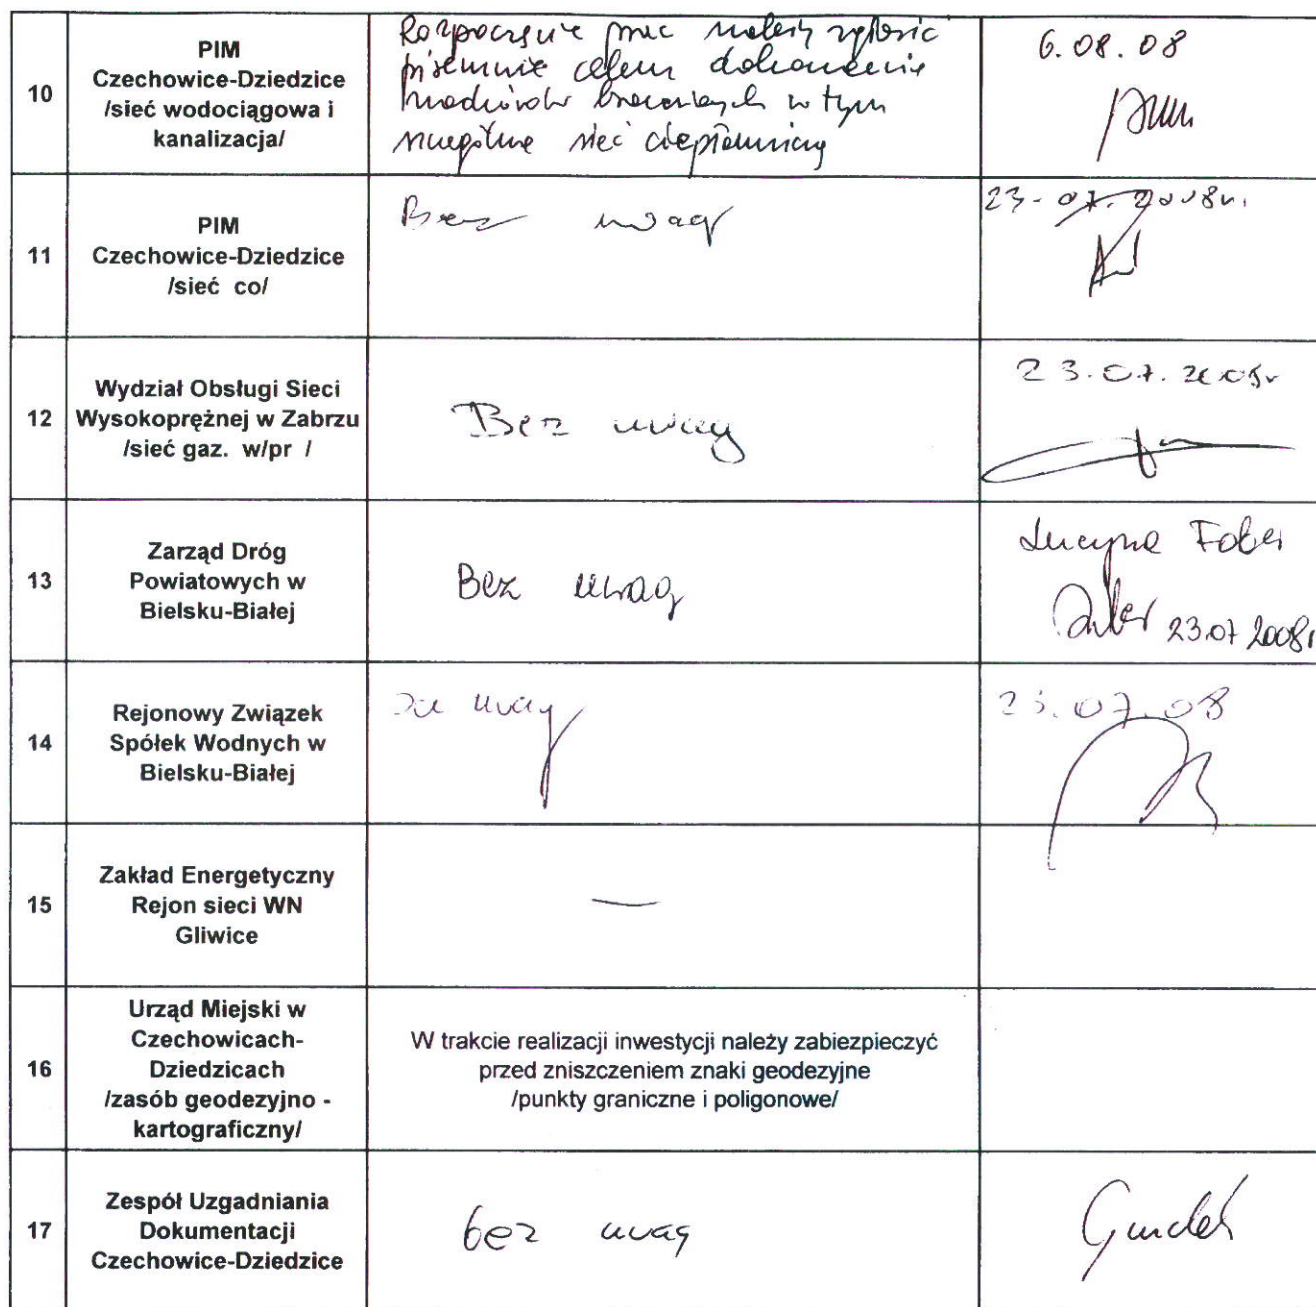 10
PIM
Czechowice-Dziedzice
/sieć wodociągowa i
kanalizacja/
Rozpoczęcie prac należy zgłosić
pisemnie celem dokonania
nadzorów branżowych w tym
szczególnie sieć
6.08.08
11
PIM
Czechowice-Dziedzice
/sieć co/
Bez uwag
23-07.2008r.
12
Wydział Obsługi Sieci
Wysokoprężnej w Zabrzu
/sieć gaz. w/pr /
Bez uwag
23.07.2008r
13
Zarząd Dróg
Powiatowych w
Bielsku-Białej
Bez uwag
Lucyna Faber
23.07 2008r
14
Rejonowy Związek
Spółek Wodnych w
Bielsku-Białej
uwag
23.07.08
15
Zakład Energetyczny
Rejon sieci WN
Gliwice
—
16
Urząd Miejski w
Czechowicach-
Dziedzicach
/zasób geodezyjno -
kartograficzny/
W trakcie realizacji inwestycji należy zabiezpieczyć
przed zniszczeniem znaki geodezyjne
/punkty graniczne i poligonowe/
17
Zespół Uzgadniania
Dokumentacji
Czechowice-Dziedzice
bez uwag